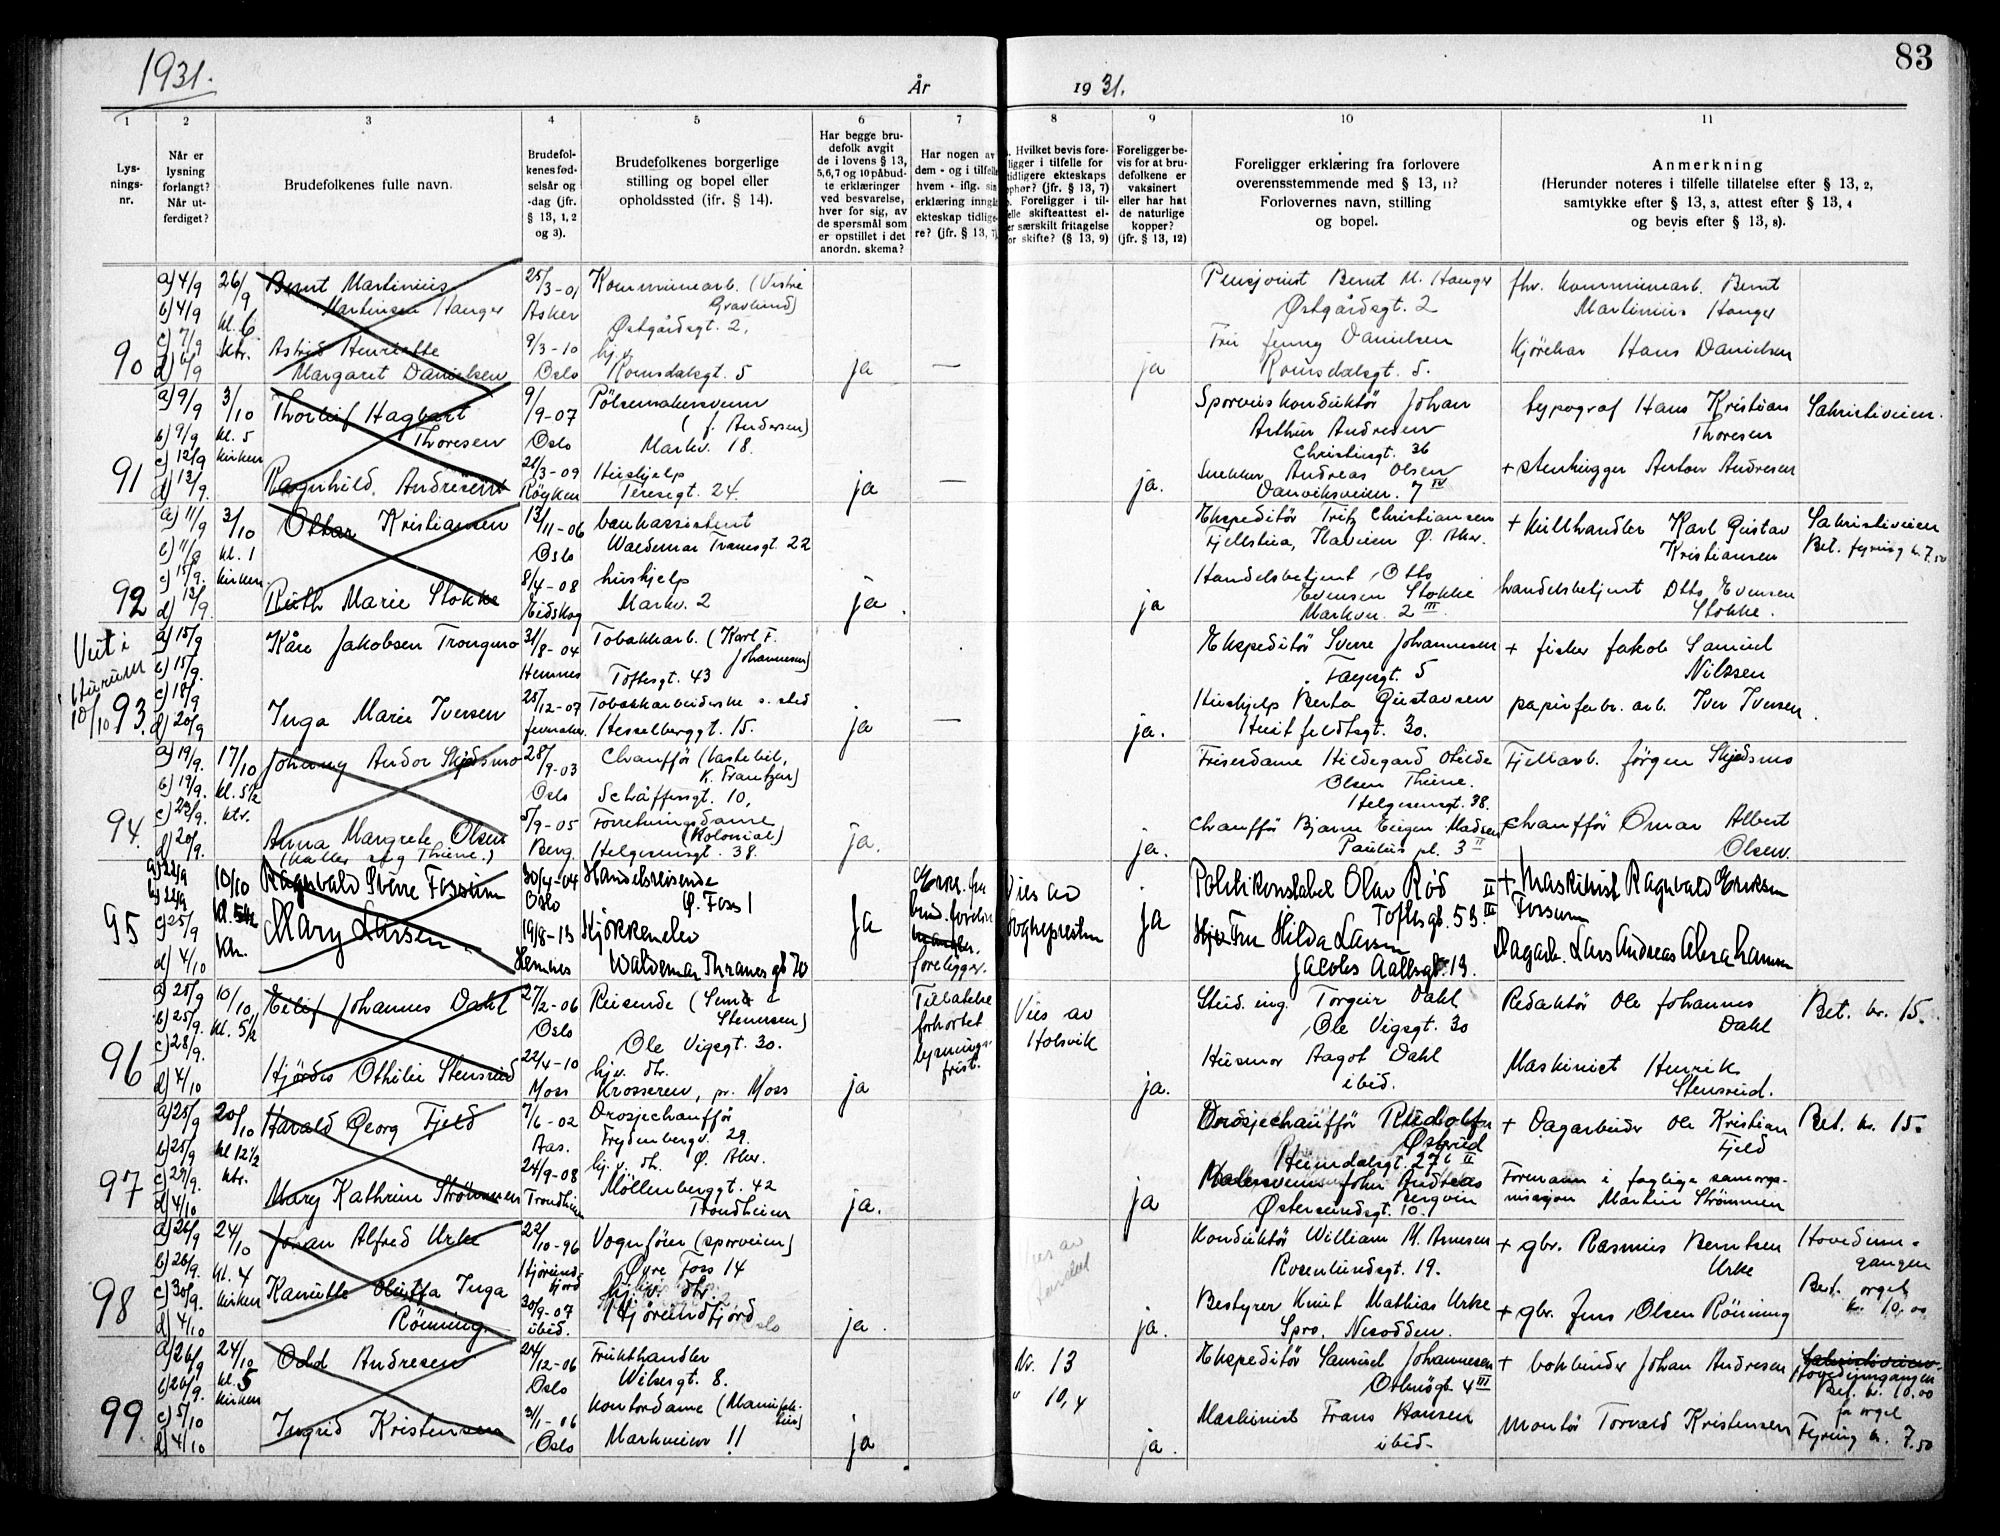 1931.
År
19 31.
83
1
2
3
4
5
6
7
8
9
10
11
Lys-
nings-
nr.
Når er
lysning
forlangt?
Når ut-
ferdiget?
Brudefolkenes fulle navn.
Brudefol-
kenes fød-
selsår og
-dag (jfr.
§ 13, 1, 2
og 3).
Brudefolkenes borgerlige
stilling og bopel eller
opholdssted (jfr. § 14).
Har begge bru-
defolk avgit
de i lovens § 13,
5,6,7 og 10 påbud-
te erklæringer
ved besvarelse,
hver for sig, av
de spørsmål som
er opstillet i det
anordn. skema?
Har nogen av
dem - og i tilfelle
hvem - iflg. sin
erklæring inngått
ekteskap tidlige-
re? (jfr. § 13, 7)
Hvilket bevis fore-
ligger i tilfelle for
tidligere ekteskaps
ophør? (jfr. § 13, 7)
Foreligger i til-
felle skifteattest el-
er særskilt fritagelse
for skifte? (§ 13, 9)
Foreligger be-
vis for at bru-
defolkene er
vaksinert
eller har hat
de naturlige
kopper?
(jfr. § 13, 12)
Foreligger erklæring fra forlovere
overensstemmende med § 13, 11?
Forlovernes navn, stilling
og bopel.
Anmerkning
(Herunder noteres i tilfelle tillatelse efter § 13, 2,
samtykke efter § 13, 3, attest efter § 13, 4
og bevis efter § 13, 8).
90
a) 4/9
b) 4/9
c) 7/9
d) 6/9
26/9
kl. 6
ktr.
Bernt Martinius
Martinsen Hanger
Astrid Henriette
Margaret Danielsen
25/3-01
Asker
9/3-10
Oslo
Kommunearb. (Vestre
Gravlund)
Østgårdsgt. 2,
hj.v.
Romsdalsgt. 5
ja
—
ja
Pensjonist Bernt M. Hanger
Østgårdsgt. 2
Fru Jenny Danielsen
Romsdalsgt. 5.
fhv. kommunearb. Bernt
Martinius Hanger
Kjørekar Hans Danielsen
91
a) 9/9
b) 9/9
c) 12/9
d) 13/9.
3/10
kl. 5
kirken
Thorleif Hagbart
Thoresen
Ragnhild Andresen
9/9-07
Oslo
21/3-09
Röyken
Pölsemakersvenn
(f. Andersen)
Markv. 18.
Hushjelp
Teresegt. 24.
ja
—
ja.
Sporveiskonduktör Johan
Arthur Andresen
Christiesgt. 36
Snekker Andreas Olsen
Danviksveien. 7 IV
typograf Hans Kristian
Thoresen
+ stenhugger Anton Andresen
Sakristiveien.
92
a) 11/9
b) 11/9
c) 15/9.
d) 13/9.
3/10
kl. 1
kirken.
Ottar Kristiansen
Ruth Marie Stokke
13/11-06
Oslo
8/4-08
Eidskog
bankassistent
Waldemar Tranesgt. 22
hushjelp
Markv. 2
ja.
ja
Ekspeditör Fritz Christiansen
Fjellstua, Ø. Aker.
Handelsbetjent Otto
Evensen Stokke
Markvn. 2 III
+ kullhandler Karl Gustav
Kristiansen
handelsbetjent Otto Evensen
Stokke.
Sakristiveien
Bet. fyring kr. 7.50
Viet i
Hurum
10/10
93.
a) 15/9
b) 15/9.
c) 18/9
d) 20/9
Kåre Jakobsen Trongmo
Inga Marie Iversen
31/8-04
Hemnes
25/12-07
Tobakkarb. (Karl F.
Johannesen)
Toftesgt. 43
Tobakkarbeiderske s. sted
Hesselberggt. 15.
ja
—
ja.
Ekspeditör Sverre Johannesen
Fayesgt. 5
Hushjelp Berta Gustavsen
Huitfeldtsgt. 30.
+ fisker Jakob Samuel
Nilssen
papirfabr. arb. Iver Iversen.
94
a) 19/9.
b) 19/9.
c) 23/9.
d) 20/9.
17/10
kl. 5½
ktr.
Johnny Andor Skjedsmo
Anna Margrete Olsen
(kaller seg Thiene.)
28/9-03
Oslo
5/9-05
Berg.
Chauffør (lastebil,
K. Frantzen)
Schäffersgt. 10,
Forretningsdame
(Kolonial)
Helgesensgt. 38.
ja.
ja.
Friserdame Hildegard Otilde
Olsen Thiene.
Helgesensgt. 38.
Chauffør Bjarne Eugen Madsen
Paulus pl. 3 II
Fjellarb. Jörgen Skjedsmo
Chauffør Omar Albert
Olsen.
95
a) 22/9
b) 22/9
c) 25/9
d) 4/10
10/10
kl. 5½
Ktr.
Ragnvald Sverre Fossum
Mary Larsen
30/4-04
Oslo
19/8-13
Hemnes
Handelsreisende
Ø. Foss 1
Kjøkkenelev
Waldemar Thranes gt 70
Ja
foreligger.
Vies av
sognepresten
ja
Politikonstabel Olav Rød II
Toftes gt. 53 III
Hjv Fru Hilda Larsen
Jacobs Aallsgt. 13.
+ Maskinist Ragnvald Eriksen
Fossum
Dagarb. Lars Andreas Abrahamsen
96
a) 25/9
b) 25/9.
c) 28/9.
d) 4/10
10/10
kl. 5½
Eilif Johannes Dahl
Hjördis Othilie Stensrud
27/2-06
Oslo
22/4-10
Moss
Reisende (Sund &
Stenersen)
Ole Vigsgt. 30.
hjv. dtr.
Krosseren, pr. Moss
ja
Tillatelse
forkortet
lysnings-
frist.
Vies av
Holsvik
ja.
Stud. ing. Torgeir Dahl
Ole Vigsgt. 30
Husmor Aagot Dahl
ibid.
Redaktör Ole Johannes
Dahl
Maskinist Henrik
Stensrud.
Bet. kr. 15.
97
a) 25/9
b) 25/9
c) 29/9.
d) 4/10
20/10
kl 12½
ktr.
Harald Georg Fjeld
Mary Kathrine Strömmen
7/6-02
Aas.
24/9-08
Trondheim
Drosjechauffør
Frydenbergv. 29.
hj. v. dtr. Ø. Aker.
Möllenberggt. 42
Trondheim
ja.
ja
Drosjechauffør Rudolf
Østerud
Heimdalsgt. 27 c II
Malersvenn John Andreas
Bergvin
Østersundsgt. 10.
+ Dagarbeider Ole Kristian
Fjeld
Formann i faglige samorga-
nisasjon Martin Strömmen
Bet. kr. 15.
98
a) 26/9
b) 26/9.
c) 30/9.
d) 4/10
24/10
kl. 4
kirken
Johan Alfred Urke
Kamille Oluffa Inga
Rönning
22/10-96
Hjørund-
fjord
30/9-07
ibid.
Vognfører (sporveien)
Øvre Foss 14
hj. v. dtr.
Hjørundfjord
ja
Vies av
ja.
Konduktör William M. Arnesen
Rosenlundsgt. 19.
Bestyrer Knut Mathias Urke
Spro, Nesodden.
+ gbr. Rasmus Berntsen
Urke
+ gbr. Jens Olsen Rönning
Hovedinn-
gangen
Best. orgel
kr. 10,00
99
a) 26/9
b) 26/9.
c) 5/10
d) 4/10
24/10
kl. 5
kirken
Odd Andresen
Ingrid Kristensen
24/12-06
Oslo
31/1-06
Oslo
Frukthandler
Wilsesgt. 8.
Kontordame (Manufak-
tur)
Markveien 11
ja
Nr. 13
" 10,4
ja.
Ekspeditör Samuel Johannesen
Osthøgt. 4 III
Maskinist Frans Hansen
ibid.
+ bokbinder Johan Andresen
Montör Torvald Kristensen
Sakristiveien
Hovedinngangen
Bet. kr. 10.00
for orgel
Fyring kr. 7.50